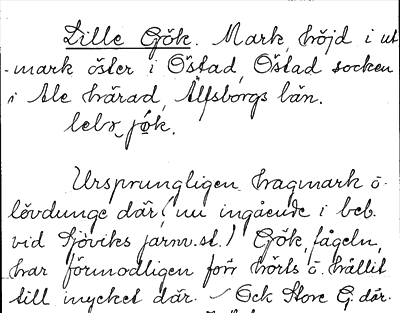 Lille Gök. Mark, höjd i ut
-mark öster i Östad, Östad socken
i Ale härad, Älfsborgs län.
jök.
Ursprungligen hagmark o.
lövdunge där (nu ingående i beb.
vid Sjöviks järnv.st.) Gök, fågeln,
har förmodligen förr hörts o. hållit
till mycket där. Ock Store G. där.